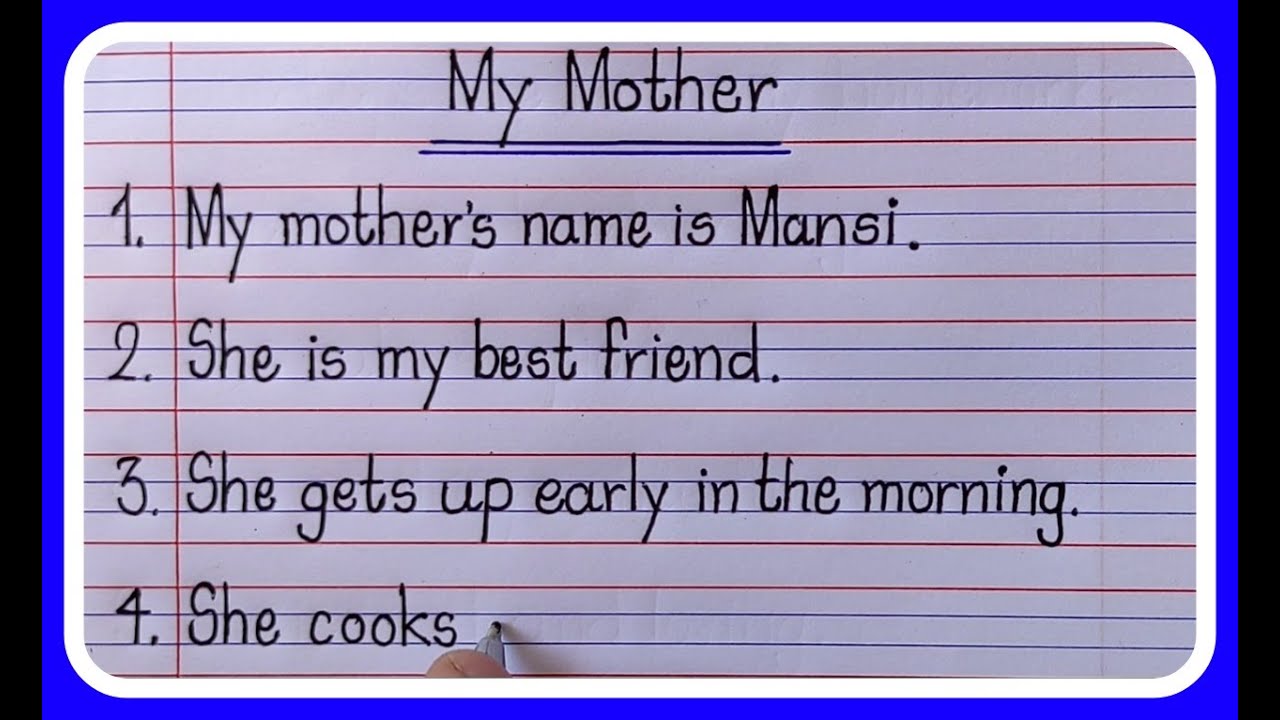 My Mother
1. My mother's name is Mansi.
2. She is my best friend.
3. She gets up early in the morning.
4. She cooks